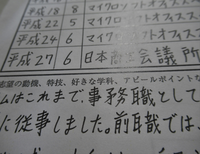 平成23 8 マイクロソフトオフィスス
平成22 5 マイクロソフトオフィスス
平成24 6 マイクロソフトオフィス
平成27 6 日本商工会議所
志望の動機、特技、好きな学科、アピールポイントな
ムはこれまで、事務職として
に従事しました。前職では、